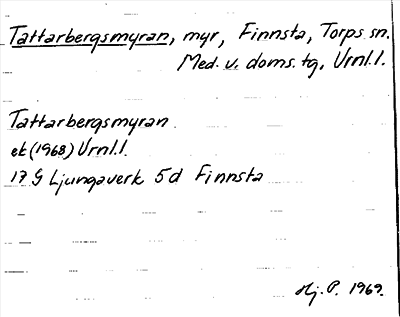 Tattarbergsmyran, myr, Finnsta, Torps sn.
Med. v. doms. tg, Vrnl. l.
Tattarbergsmyran
ek (1968) Vrnl. l.
17 G Ljungaverk 5d Finnsta
Hj. P. 1969.